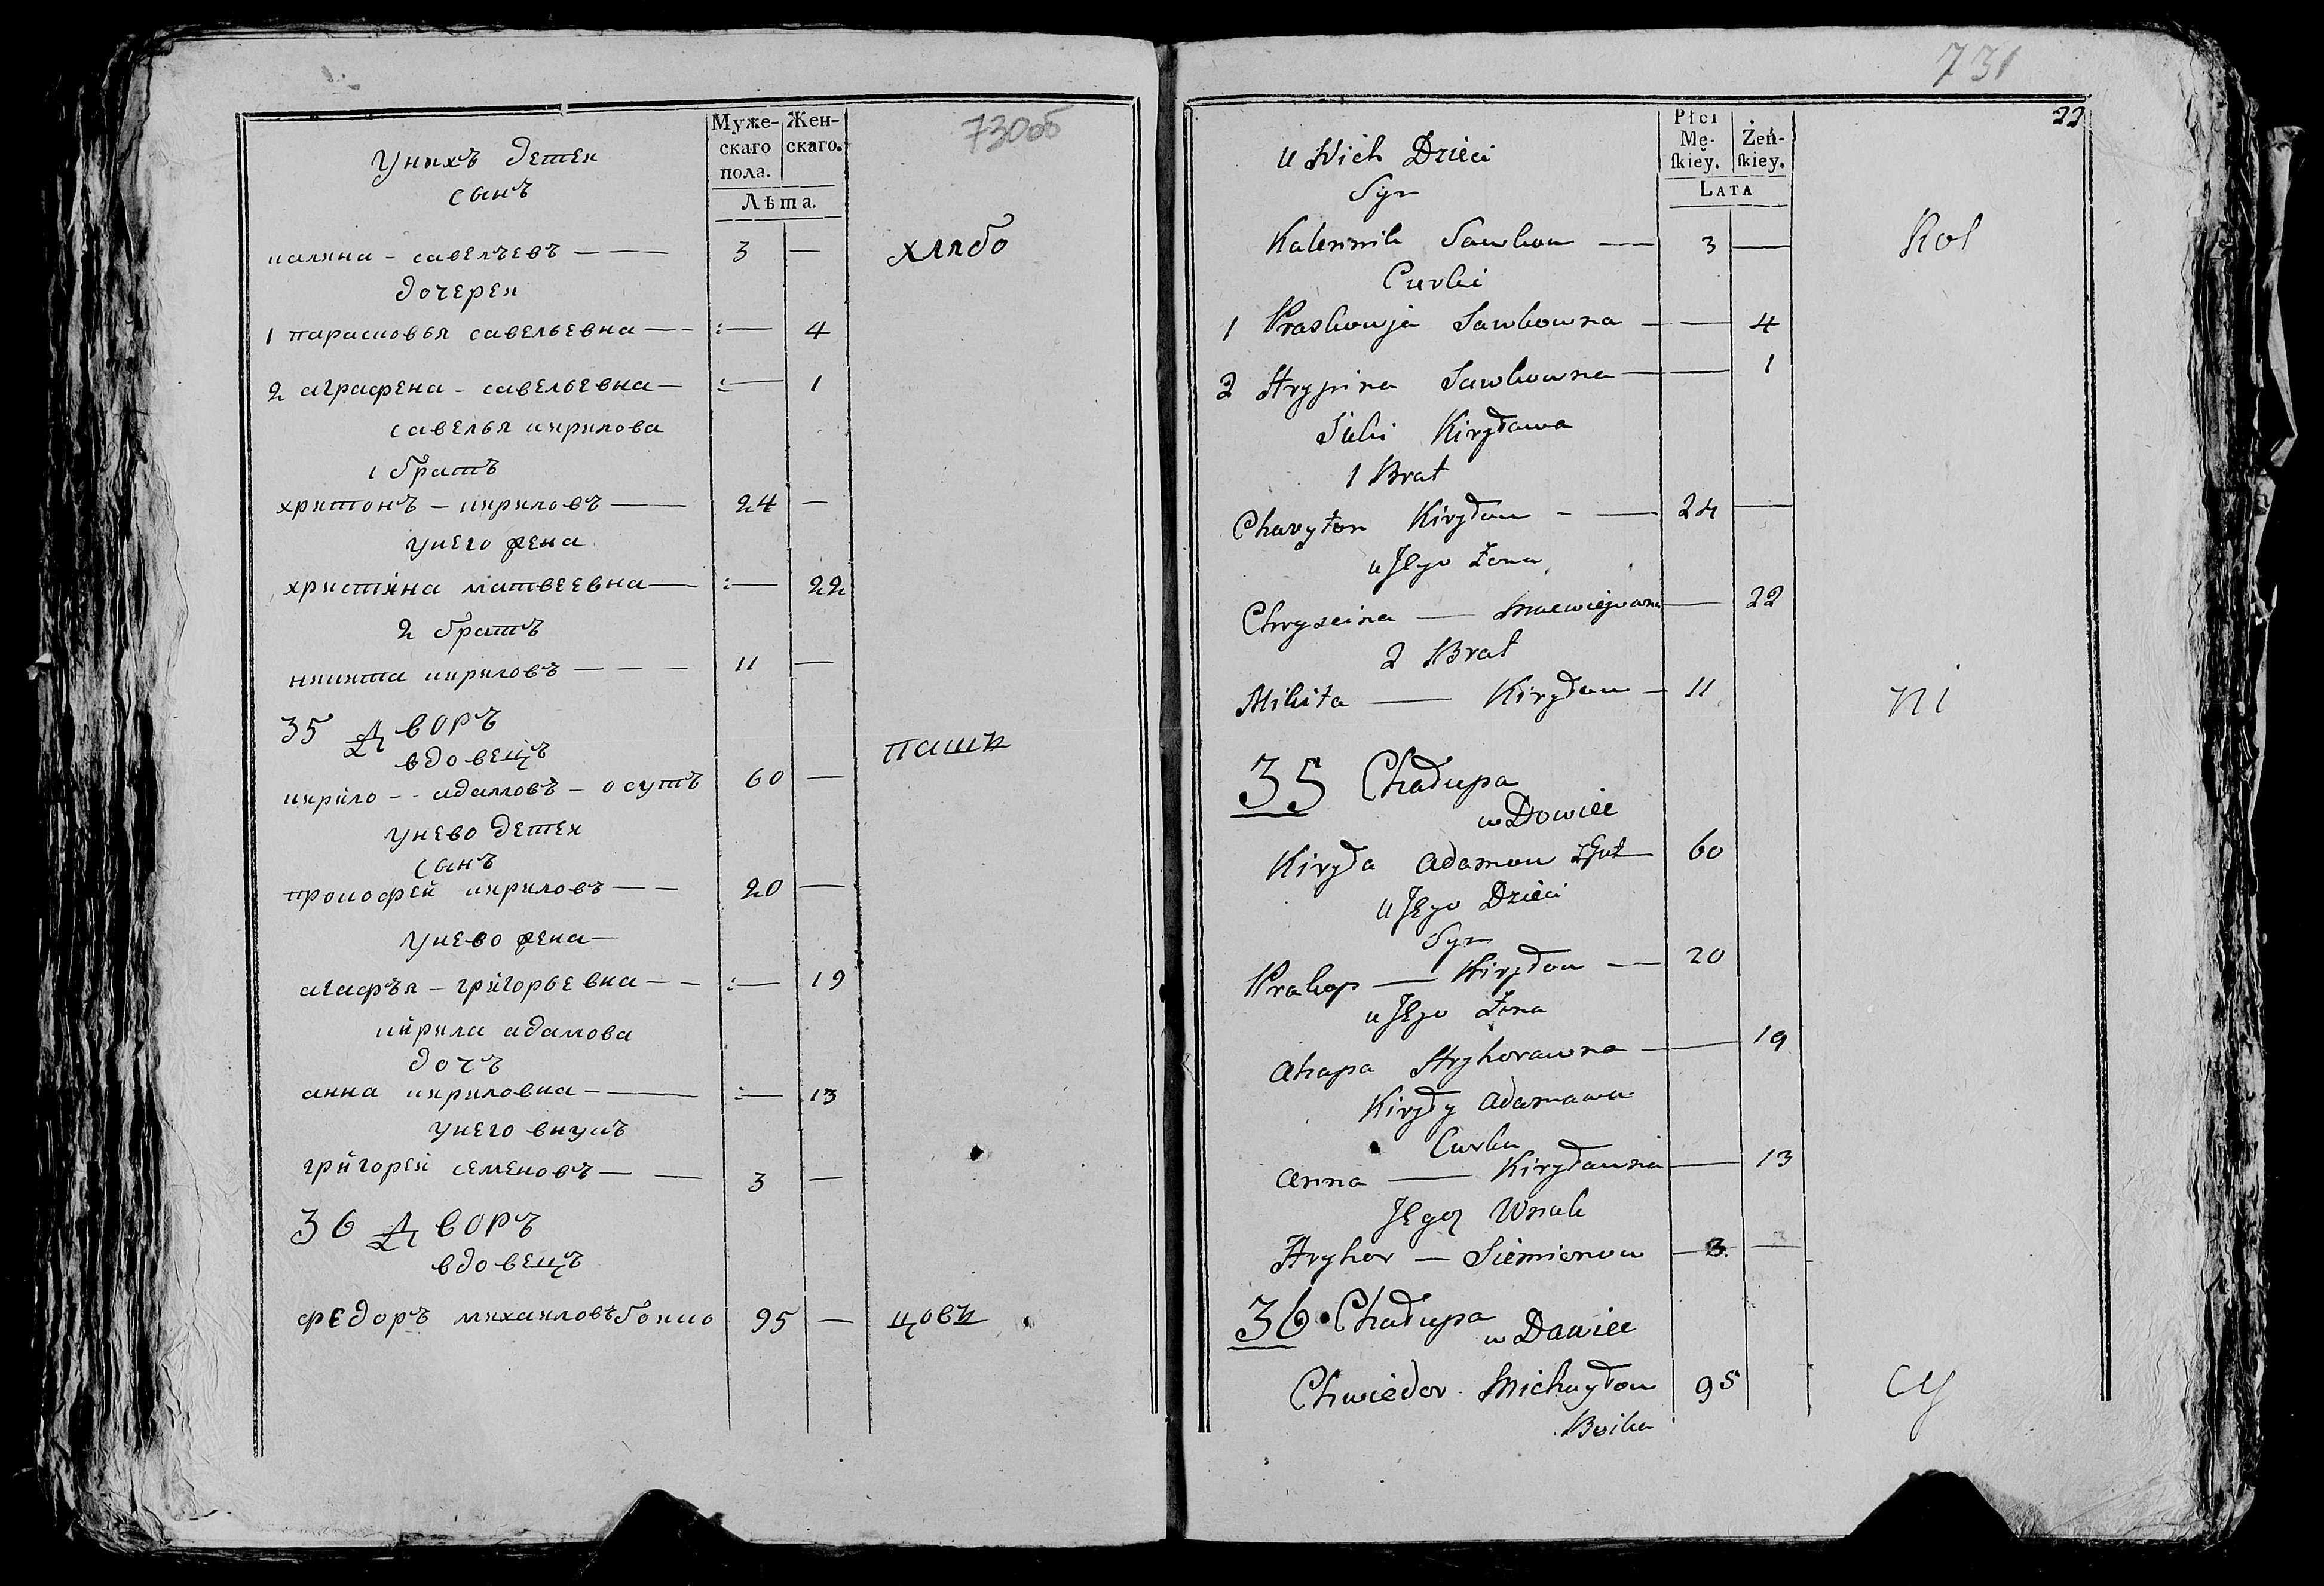 730об
Муже-
скаго
пола.
Жен-
скаго.
Лѣта.
унихъ детеи
сынъ
савелъевъ 3 — хлябо
дочереи
1 парасковья савельевна — 4
2 аграфена - савельевна — 1
савелья кирилова
1 братъ
харитонъ - кириловъ 24 —
унего жена
христина матвеевна — 22
2 братъ
никита кириловъ 11 —
35 дворъ
вдовецъ
пашк
кирило - адамовъ - осутъ 60 —
унево детеи
сынъ
прокофей кириловъ 20 —
унево жена
агафъя - григорьевна — 19
кирила адамова
дочъ
анна кириловна — 13
унего внукъ
григорей семеновъ 3 —
36 дворъ
вдовецъ
федоръ михаиловъ боико 95 — цови
731
22
Płci
Mę-
skiey.
Żeń-
skiey.
Lata
u Nich Dzieci
Syn
Kalennik Sawkow 3 — Kol
Curki
1 Praskowja Sawkowna — 4
2 Hrypina Sawkowna — 1
Kiryłowa
1 Brat
Charyton Kiryłow 24 —
u Jego Żona
Chryscina — Macwiejowna — 22
2 Brat
Mikita — Kiryłow 11
ni
35 Chałupa
wDowiec
Kiryła Adamow 60
u Jego Dzieci
Syn
Prakop — Kiryłow 20
u Jego Żona
Ahapa Hryhorawna — 19
Kiryły Adamawa
Curka
Anna — Kiryławna — 13
Jego Wnuk
Hryhor — Siemionow 3 —
36 Chałupa
wDawiec
Chwiedor Michayłow 95 cy
Boika